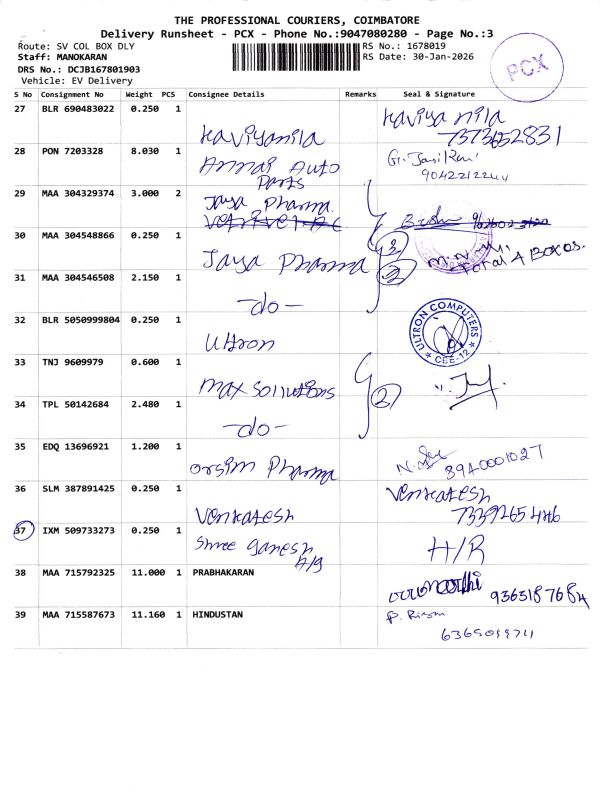 THE PROFESSIONAL COURIERS, COIMBATORE
Delivery Runsheet - PCX - Phone No.:9047080280 - Page No.:3
Route: SV COL BOX DLY
RS No.: 1678019
Staff: MANOKARAN
RS Date: 30-Jan-2026
DRS No.: DCJB167801903
Vehicle: EV Delivery
PCX
S No Consignment No Weight PCS Consignee Details Remarks Seal & Signature
27 BLR 690483022 0.250 1
Kaviyanila Kaviya nila
7373652831
28 PON 7203328 8.030 1
Annai Auto
Parts
9042212244
29 MAA 304329374 3.000 2
Jaya Pharma
30 MAA 304548866 0.250 1
Jaya Pharma
Total 4 Boxes.
31 MAA 304546508 2.150 1
-do-
32 BLR 5050999804 0.250 1
Ultron
ULTRON COMPUTERS
CBE-12
33 TNJ 9609979 0.600 1
Max Sollutions
2
34 TPL 50142684 2.480 1
-do-
35 EDQ 13696921 1.200 1
orsim Pharma
8940001027
36 SLM 387891425 0.250 1
Venkatesh Venkatesh
37 IXM 509733273 0.250 1
Shree Ganesh
H/R
38 MAA 715792325 11.000 1 PRABHAKARAN
9363187684
39 MAA 715587673 11.160 1 HINDUSTAN